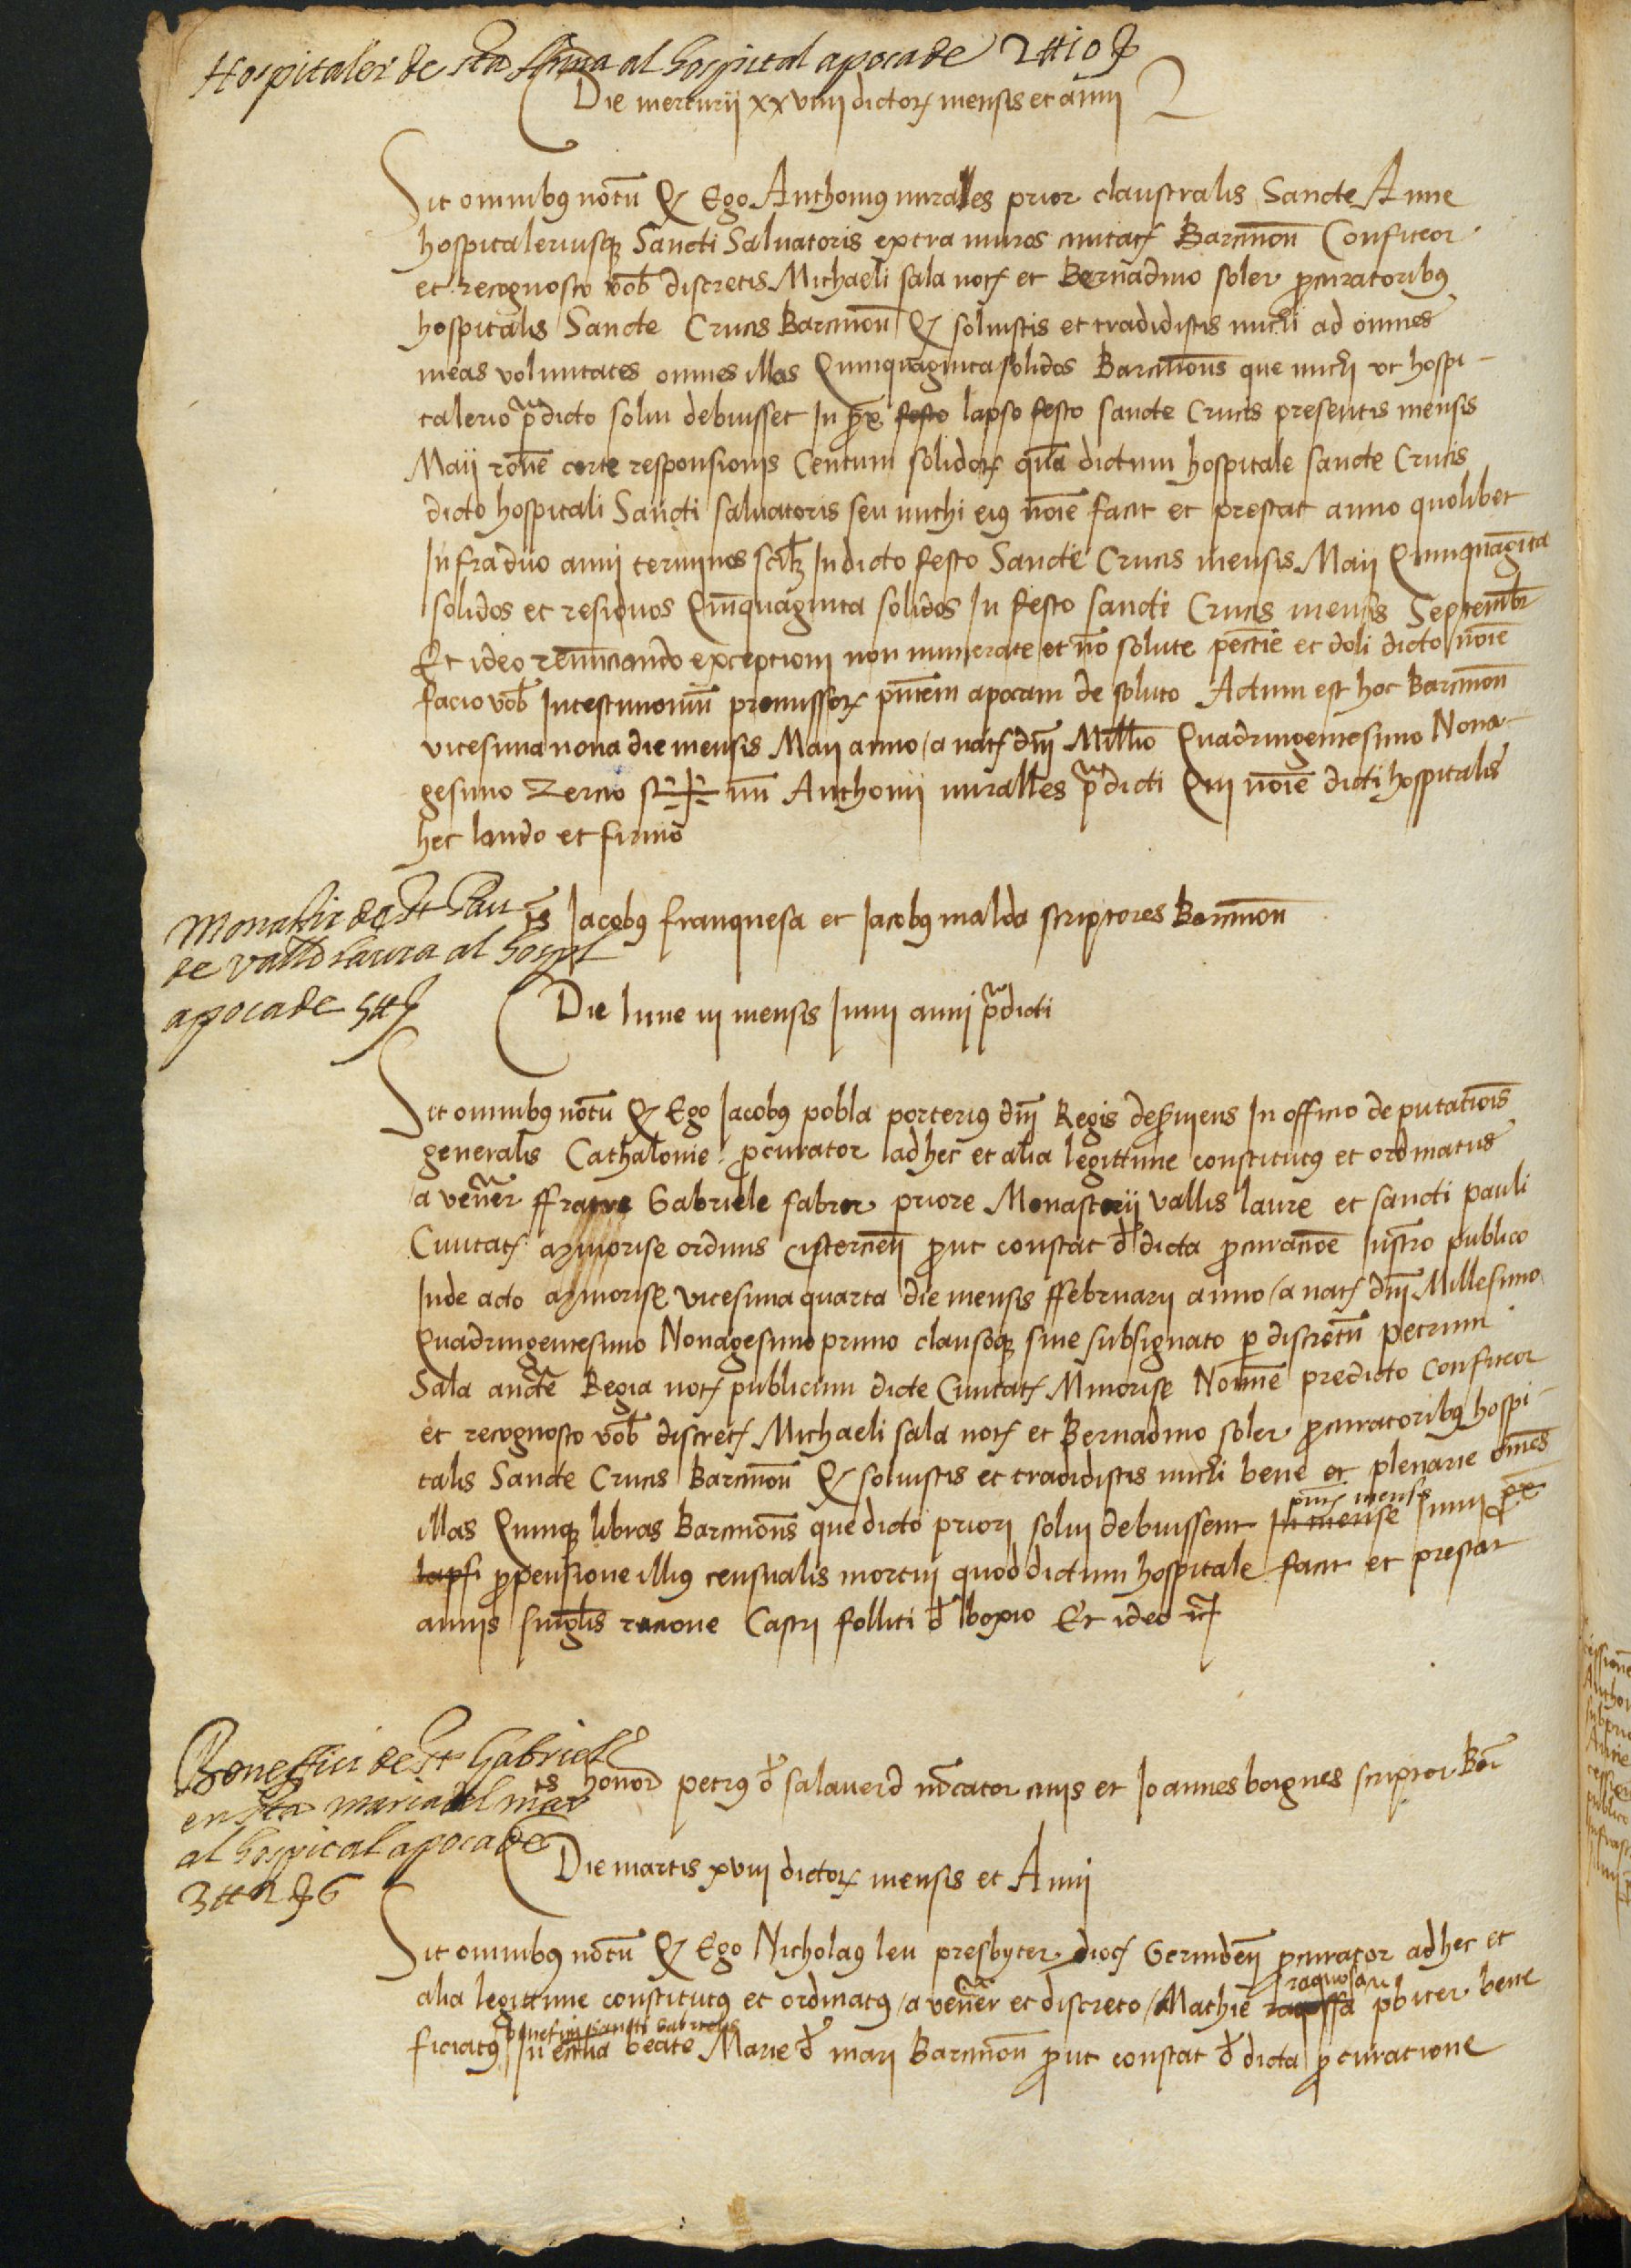 Hospitaler de sta Anna al hospital apoca de 2 ₶ 10 ẜ
Die mercurii xxviiii dictoꝝ mensis et anni
Sit omnibꝰ notū ꝙ Ego Anthoniꝰ miralles prior claustralis Sancte Anne
hospitaleriusqꝫ Sancti Saluatoris extra muros ciuitatꝭ Barcinoñ Confiteor
et recognosco vob̄ discretis Michaeli sala notꝭ et Bernadino soler ꝓcuratoribꝰ
hospitalis Sancte Crucis Barcinoñ ꝙ soluistis et tradidistis michi ad omnes
meas voluntates omnes illos Quinquaginta solidos Barcinoneñs que michi vt hospi-
talerio p̄dicto solui debuisset In ꝓx̄ festo lapso festo sancte Crucis presentis mensis
Maii rōne certe responsionis Centum solidoꝝ quā dictum hospitale sancte Crucis
dicto hospitali Sancti saluatoris seu michi eiꝰ noīe facit et prestat anno quolibet
Infra duo anni terminos scilꝫ In dicto festo Sancte Crucis mensis Maii Quinquaginta
solidos et residuos Quinquaginta solidos In festo sancte Crucis mensis Septembr̄
Et ideo renūciando exceptioni non numerate et nō solute pecūie et doli dicto noīe
facio vob̄ In testimoniū premissoꝝ p̄ntem apocam de soluto Actum est hoc Barcinoñ
vicesima nona die mensis Maii anno a natꝭ dn̄j Millīo Quadringentesimo Nona-
gesimo Tercio Sig✝num Anthonii miralles p̄dicti Qui noīe dicti hospitalis
hec laudo et firmo
Monastir de St Pau
de Valldlaura al hospl
apoca de 5 ₶ ẜ
ts Iacobꝰ franquesa et Iacobꝰ malda scriptores Barcinoñ
Die lune iii mensis Iunii anni p̄dicti
Sit omnibꝰ notū ꝙ Ego Iacobꝰ pobla porteriꝰ dn̄j Regis deẜuiens In officio deputatiōis
generalis Cathalonie ꝓcurator ad hec et alia legittime constitutꝰ et ordinatus
a vener ffratre Gabriele fabrer priore Monasterii vallis laure et sancti pauli
Ciuitatꝭ Minorise ordinis cisterciēn ꝓut constat d̄ dicta ꝓcuracōe Instro publico
Inde acto Minorise vicesima quarta die mensis ffebruarii anno a natꝭ dn̄j Millesimo
Quadringentesimo Nonagesimo primo clausoqꝫ siue subsignato ꝑ discretū Petrum
Sala aucte Regia notꝭ publicum dicte Ciuitatꝭ Minorise Nomīe predicto confiteor
et recognosco vob̄ discretꝭ Michaeli sala notꝭ et Bernadino soler ꝓcuratoribꝰ hospi-
talis Sancte Crucis Barcinoñ ꝙ soluistis et tradidistis michi bene et plenarie om̄es
illas Quinqꝫ libras Barcinoneñs que dicto priori solui debuissent In mense p̄ntꝭ mensis Iunii ꝓx̄
lapsi ꝓ pensione illiꝰ censualis mortui quod dictum hospitale facit et prestat
annis singlis racione Castri folliti d̄ boxio Et ideo etc̄
Beneffici de St Gabriel
en sta maria del mar
al hospital apoca de
3 ₶ 2 ẜ 6
ts honor petrꝰ d̄ salauerd m̄cator ciuis et Ioannes borgnes scriptor Bar̄
Die martis xviii dictoꝝ mensis et Anni
Sit omnibꝰ notū ꝙ Ego Nicholaꝰ leu presbyter diocꝭ Gerundeñ ꝓcurator ad hec et
alia legittime constitutꝰ et ordinatꝰ a vener et discreto Mathie pbiter bene
ficiatꝰ In ecc̄lia beate Marie d̄ mari Barcinoñ ꝓut constat d̄ dicta ꝓcuratione